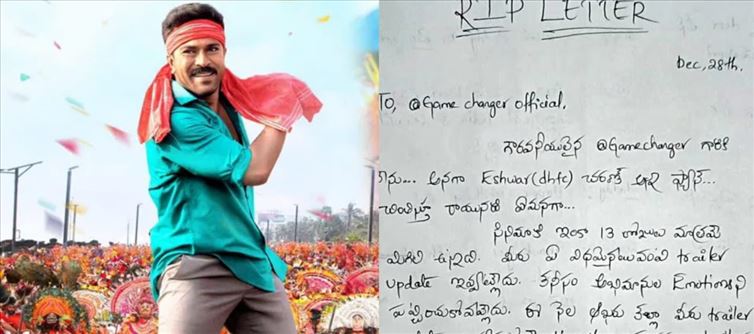 RIP LETTER
Dec, 28th.
TO, @Game changer official.
గౌరవనీయులైన @Gamechanger గారికి
నేను... అనగా Eshwar(dhfc) చరణ్ అన్న ఫ్యాన్...
చింతిస్తూ రాయునది ఏమనగా...
సినిమాకి ఇంకా 13 రోజులు మాత్రమే
మిగిలి ఉన్నది. మీరు ఏ విధమైనటువంటి trailer
update ఇవ్వట్లేదు. కనీసం అభిమానుల Emotionsని
పట్టించుకోవట్లేదు. ఈ నెల ఆఖరు కల్లా మీరు trailer